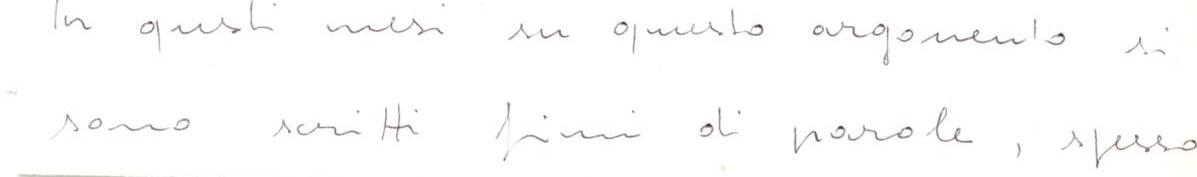 In questi mesi su questo argomento si
sono scritti fiumi di parole, spesso